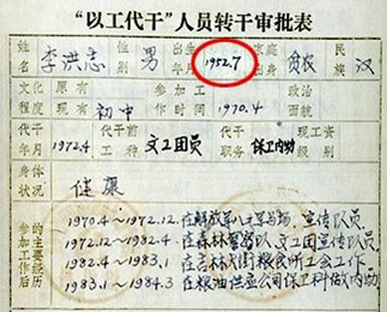 “以工代干”人员转干审批表
姓名 李洪志 性别 男 出生年月 1952.7 家庭出身 贫农 民族 汉
文化程度 原有 现有 初中 参加工作时间 1970.4 政治面貌
代干年月 1972.4 代干前工种 文工团员 现代干职务 保卫内勤 现工资级别
身体状况 健康
参加工作后的主要经历
1970.4~1972.12. 在解放军八一军马场、宣传队员.
1972.12~1982.4 在森林警察队 文工团宣传队员.
1982.4~1983.1 在吉林大街粮食所工会工作
1983.1~1984.3 在粮油供应公司保卫科做内勤